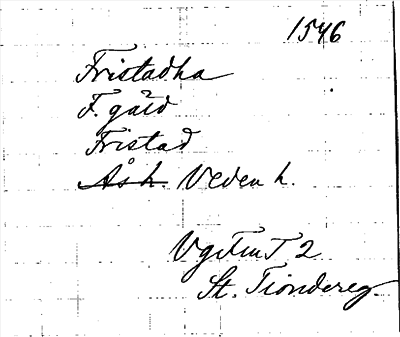 1546
Fristadha
F. gäld
Fristad
Ås h. Veden h.
Vg Fru T 2
St. Tiondereg.